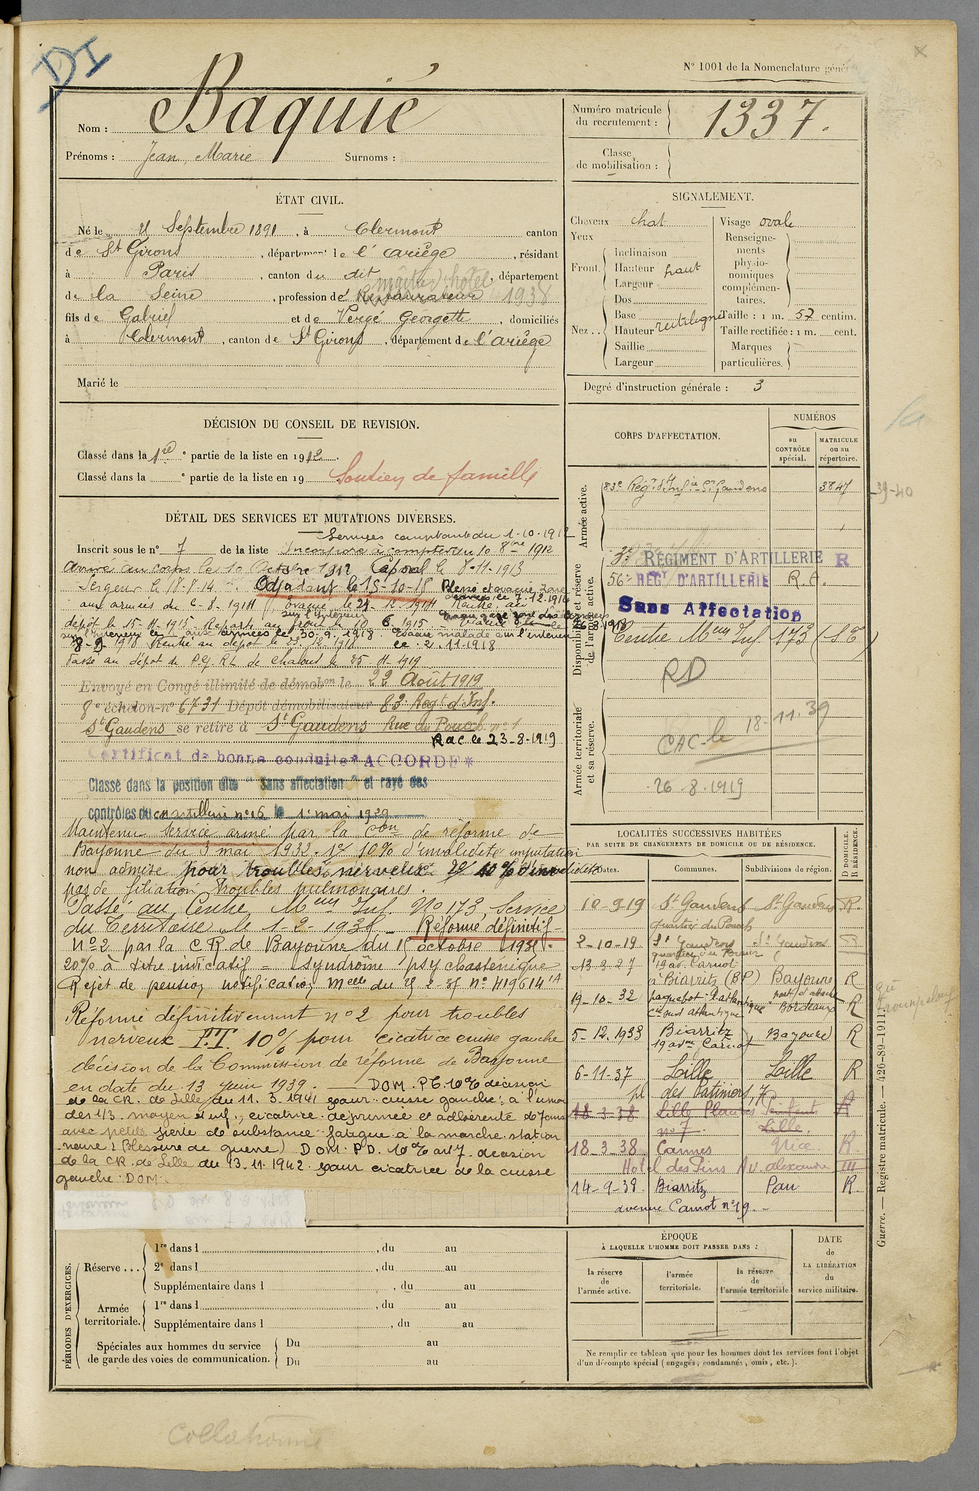 DI
N° 1001 de la Nomenclature génér
Nom : Baquié
Prénoms : Jean, Marie Surnoms :
Numéro matricule du recrutement : 1337.
Classe de mobilisation :
ÉTAT CIVIL.
Né le 21 Septembre 1891, à Clermont canton
de St Girons, département de l'Ariège, résidant
à Paris, canton du dit, département
maître hôtel 1938
de la Seine, profession de Restaurateur
fils de Gabriel et de Vergé Georgette, domiciliés
à Clermont, canton de St Girons, département de l'Ariège
Marié le
SIGNALEMENT.
Cheveux chat
Yeux
Front. Inclinaison
Hauteur haut
Largeur
Dos
Base
Nez.. Hauteur rectiligne
Saillie
Largeur
Visage ovale
Renseignements physionomiques complémentaires.
Taille : 1 m. 57 centim.
Taille rectifiée : 1 m. cent.
Marques particulières.
Degré d'instruction générale : 3
DÉCISION DU CONSEIL DE REVISION.
Classé dans la 1re partie de la liste en 1912
Classé dans la partie de la liste en 19 Soutien de famille
CORPS D'AFFECTATION.
NUMÉROS
au CONTRÔLE spécial.
MATRICULE ou au répertoire.
Armée active.
83e Régt d'Infie St Gaudens 3847
39-40
Disponibilité et réserve de l'armée active.
RÉGIMENT D'ARTILLERIE R
56e REGt D'ARTILLERIE R.A.
Sans Affectation
Centre Mce Inf 173 (S.T)
RD
Armée territoriale et sa réserve.
CAC le 18-11-39
26-8-1919
DÉTAIL DES SERVICES ET MUTATIONS DIVERSES.
Services comptant du 1-10-1912
Inscrit sous le n° 7 de la liste Incorporé à compter du 10 8bre 1912
Arrivé au corps le 10 Octobre 1912 Caporal le 8-11-1913
Sergent le 18-8-14. Adjudant le 15-10-18 Blessé et évacué
aux armées du 6-8-1914 évacué le 12-1914 Rentré au
dépôt le 15-11-1915. Reparti au front le 10 6-1915
évacué malade sur l'intérieur
le 2.11.1918
Passé au dépôt de P.G.R.L de Chalons le 25 11 1919
Envoyé en Congé illimité de démobon le 22 Aout 1919
8e échelon n° 6731 Dépôt démobilisateur 83e Regt d'Inf.
St Gaudens se retire à St Gaudens Rue du Pouech n° 1
RAC le 23-8-1919
Certificat de bonne conduite "ACCORDÉ"
Classé dans la position dite "Sans affectation" et rayé des
contrôles du cn artillerie n° 16 le 1er mai 1929
Maintenu service armé par la Con de réforme de
Bayonne du 3 mai 1932. 1° 10% d'invalidité imputation
non admise pour troubles nerveux 2° 10% d'invalidité
pas de filiation troubles pulmonaires.
Passé au Centre Mce Inf. N° 173, Service
du Territoire le 1-2-1938 - Réformé définitif
n° 2 par la C.R de Bayonne du 1er octobre 1938.
20% à titre indicatif - syndrome psychasténique
Rejet de pension notification Melle du n° 419614
Réformé définitivement n° 2 pour troubles
nerveux P.T. 10% pour cicatrice cuisse gauche
décision de la Commission de réforme de Bayonne
en date du 13 juin 1939. DOM. PT. 10% décision
de la CR. de Lille du 11.3.1941 pour cuisse gauche : à l'union
des 1/3 moyen & inf., cicatrice déprimée et adhérente de
avec petite perte de substance fatigue à la marche station
(Blessure de guerre) DOM. P.D. 10% décision
de la C.R. de Lille du 13.11.1942. pour cicatrice de la cuisse
gauche. DOM.
LOCALITÉS SUCCESSIVES HABITÉES
PAR SUITE DE CHANGEMENTS DE DOMICILE OU DE RÉSIDENCE.
Dates. Communes. Subdivisions de région. D DOMICILE. R RÉSIDENCE.
10-9-19 St Gaudens St Gaudens R.
quartier du Pouech
2-10-19 St Gaudens St Gaudens D
13-2-27 19 av. Carnot
à Biarritz (BP) Bayonne R
19-10-32 paquebot l'atlantique Bordeaux R
Cie sud atlantique
5-12-1933 Biarritz Bayonne R
19 avue Carnot
6-11-37 Lille Lille R
pl des Patiniers, 7
18-3-38 Lille R
n° 7 Lille
18-3-38 Cannes Nice R.
Hotel des Pins Av. Alexandre III
14-9-38 Biarritz Pau R.
avenue Carnot n° 19.
Guerre. — Registre matricule. — 426-89-1911.
PÉRIODES D'EXERCICES.
Réserve... 1re dans l , du au
2e dans l , du au
Supplémentaire dans l , du au
Armée territoriale. 1re dans l , du au
Supplémentaire dans l , du au
Spéciales aux hommes du service de garde des voies de communication. Du au
Du au
ÉPOQUE
À LAQUELLE L'HOMME DOIT PASSER DANS :
la réserve de l'armée active.
l'armée territoriale.
la réserve de l'armée territoriale
DATE de LA LIBÉRATION du service militaire.
Ne remplir ce tableau que pour les hommes dont les services font l'objet
d'un décompte spécial (engagés, condamnés, omis, etc.).
Collationné